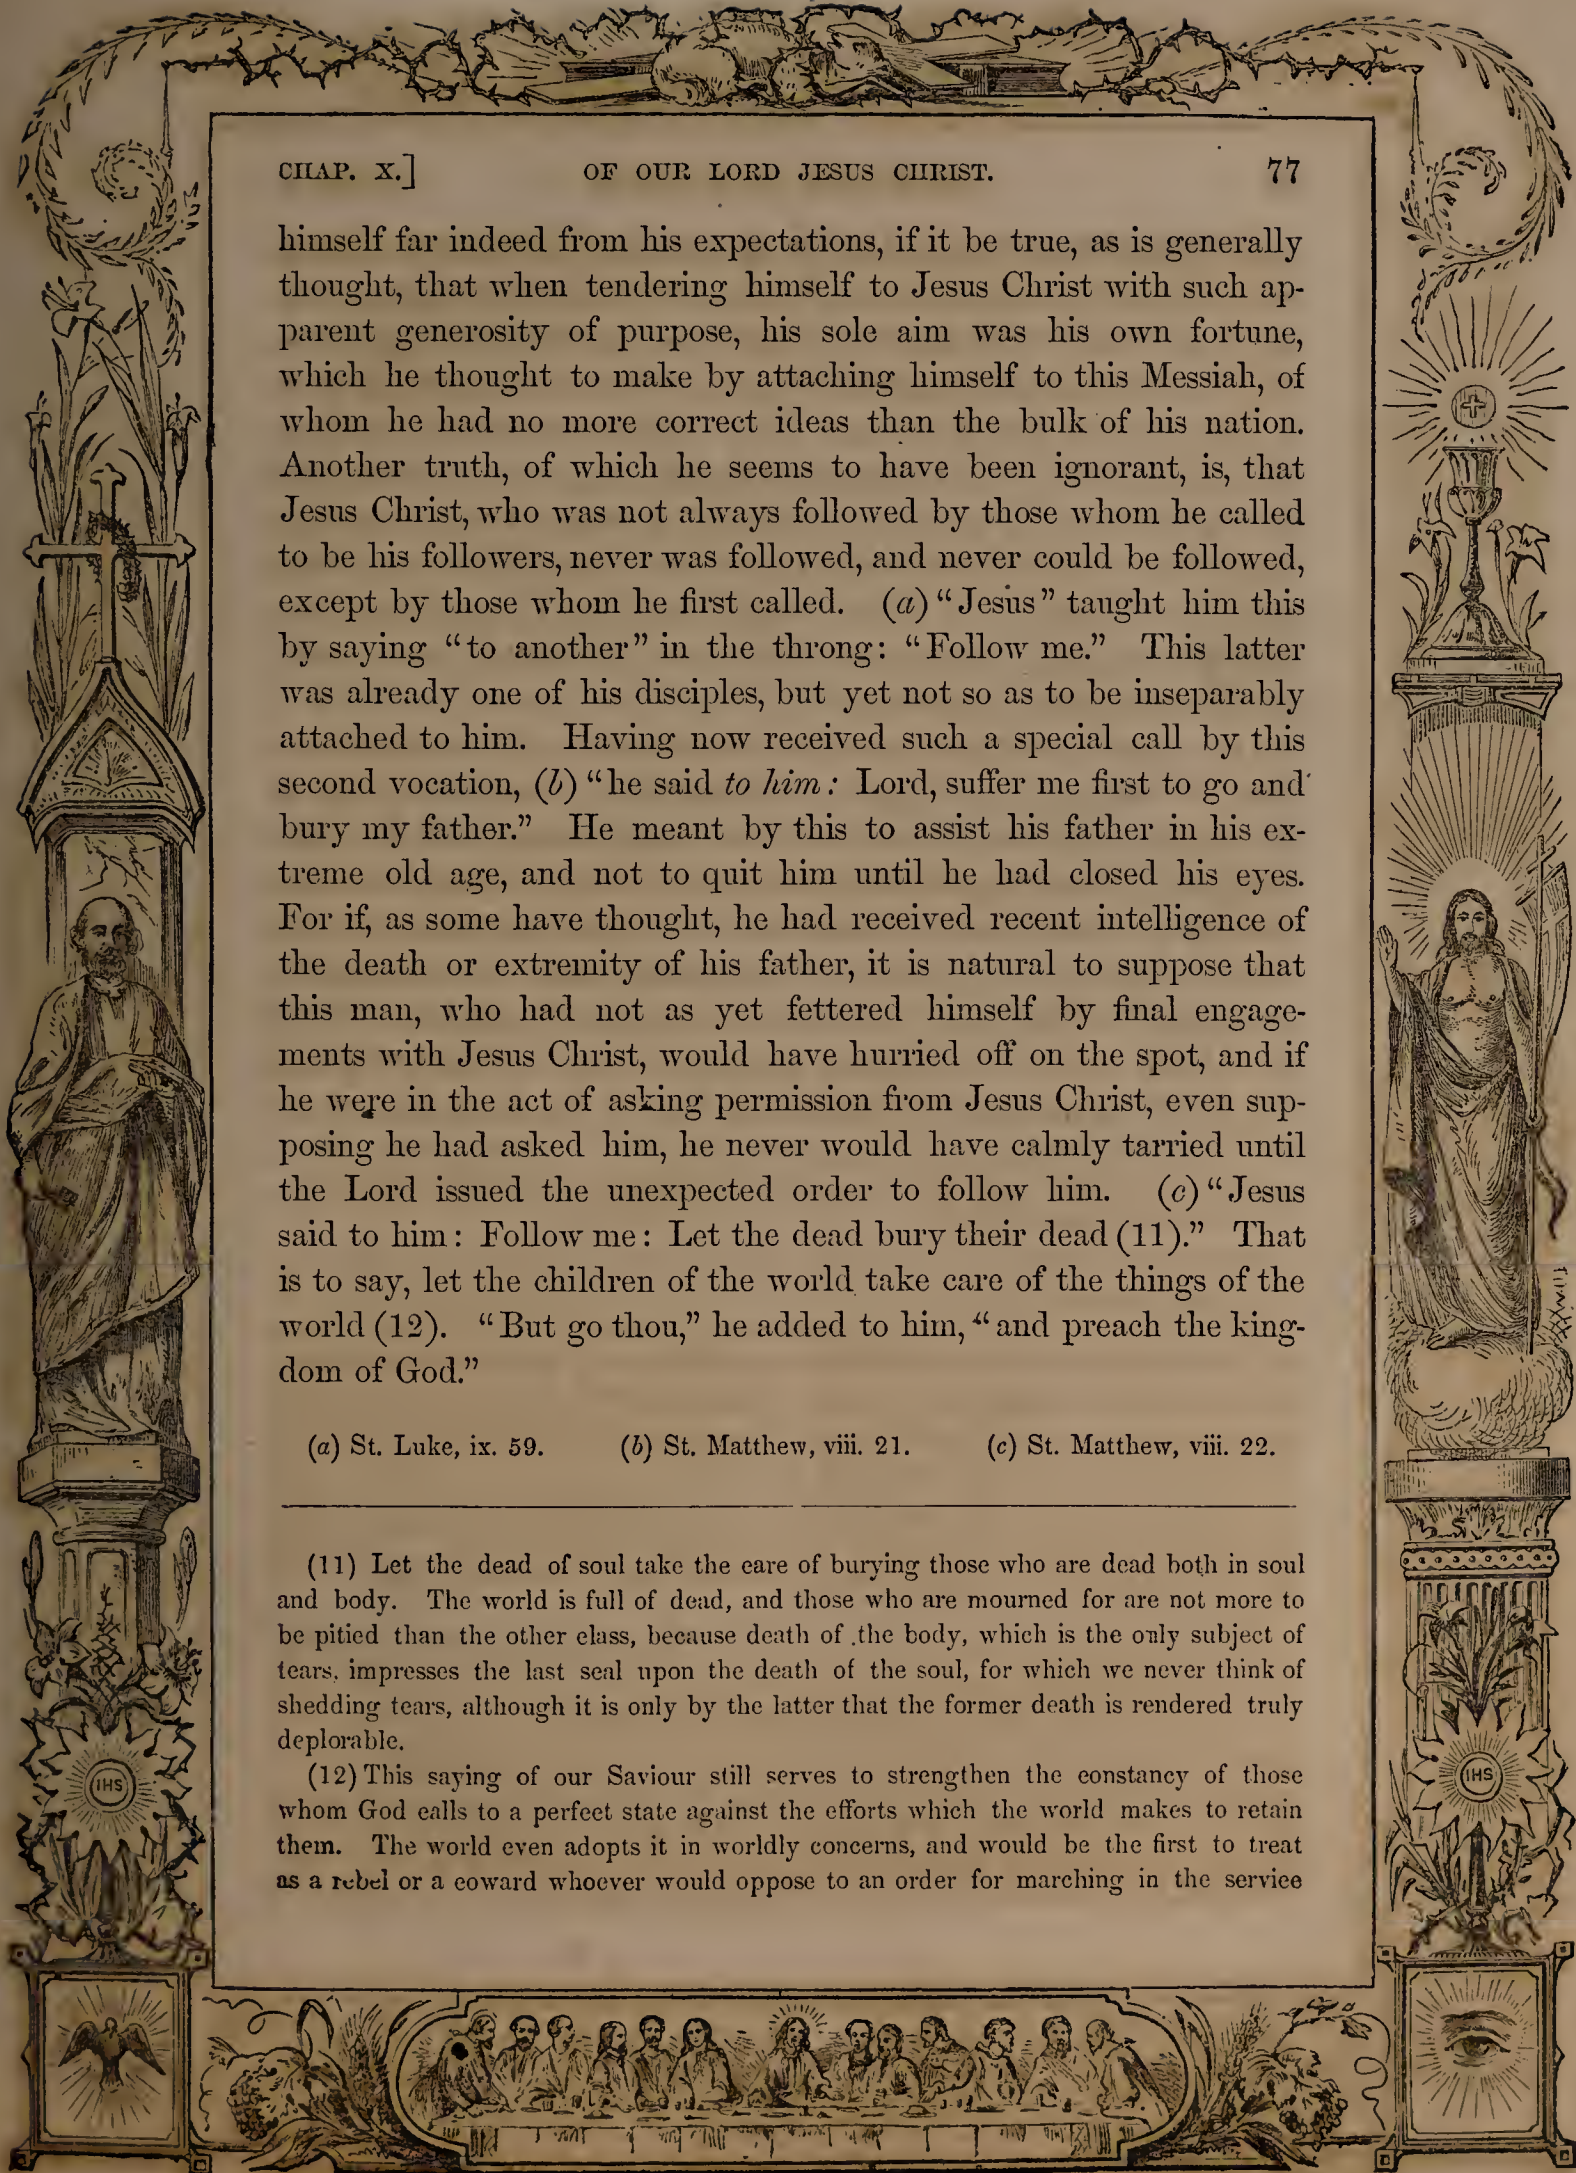 CHAP. X.] OF OUR LORD JESUS CHRIST. 77
himself far indeed from his expectations, if it be true, as is generally
thought, that when tendering himself to Jesus Christ with such ap-
parent generosity of purpose, his sole aim was his own fortune,
which he thought to make by attaching himself to this Messiah, of
whom he had no more correct ideas than the bulk of his nation.
Another truth, of which he seems to have been ignorant, is, that
Jesus Christ, who was not always followed by those whom he called
to be his followers, never was followed, and never could be followed,
except by those whom he first called. (a) “Jesus” taught him this
by saying “to another” in the throng: “Follow me.” This latter
was already one of his disciples, but yet not so as to be inseparably
attached to him. Having now received such a special call by this
second vocation, (b) “he said to him: Lord, suffer me first to go and
bury my father.” He meant by this to assist his father in his ex-
treme old age, and not to quit him until he had closed his eyes.
For if, as some have thought, he had received recent intelligence of
the death or extremity of his father, it is natural to suppose that
this man, who had not as yet fettered himself by final engage-
ments with Jesus Christ, would have hurried off on the spot, and if
he were in the act of asking permission from Jesus Christ, even sup-
posing he had asked him, he never would have calmly tarried until
the Lord issued the unexpected order to follow him. (c) “Jesus
said to him: Follow me: Let the dead bury their dead (11).” That
is to say, let the children of the world take care of the things of the
world (12). “But go thou,” he added to him, “and preach the king-
dom of God.”
(a) St. Luke, ix. 59. (b) St. Matthew, viii. 21. (c) St. Matthew, viii. 22.
(11) Let the dead of soul take the care of burying those who are dead both in soul
and body. The world is full of dead, and those who are mourned for are not more to
be pitied than the other class, because death of the body, which is the only subject of
tears, impresses the last seal upon the death of the soul, for which we never think of
shedding tears, although it is only by the latter that the former death is rendered truly
deplorable.
(12) This saying of our Saviour still serves to strengthen the constancy of those
whom God calls to a perfect state against the efforts which the world makes to retain
them. The world even adopts it in worldly concerns, and would be the first to treat
as a rebel or a coward whoever would oppose to an order for marching in the service
IHS
IHS